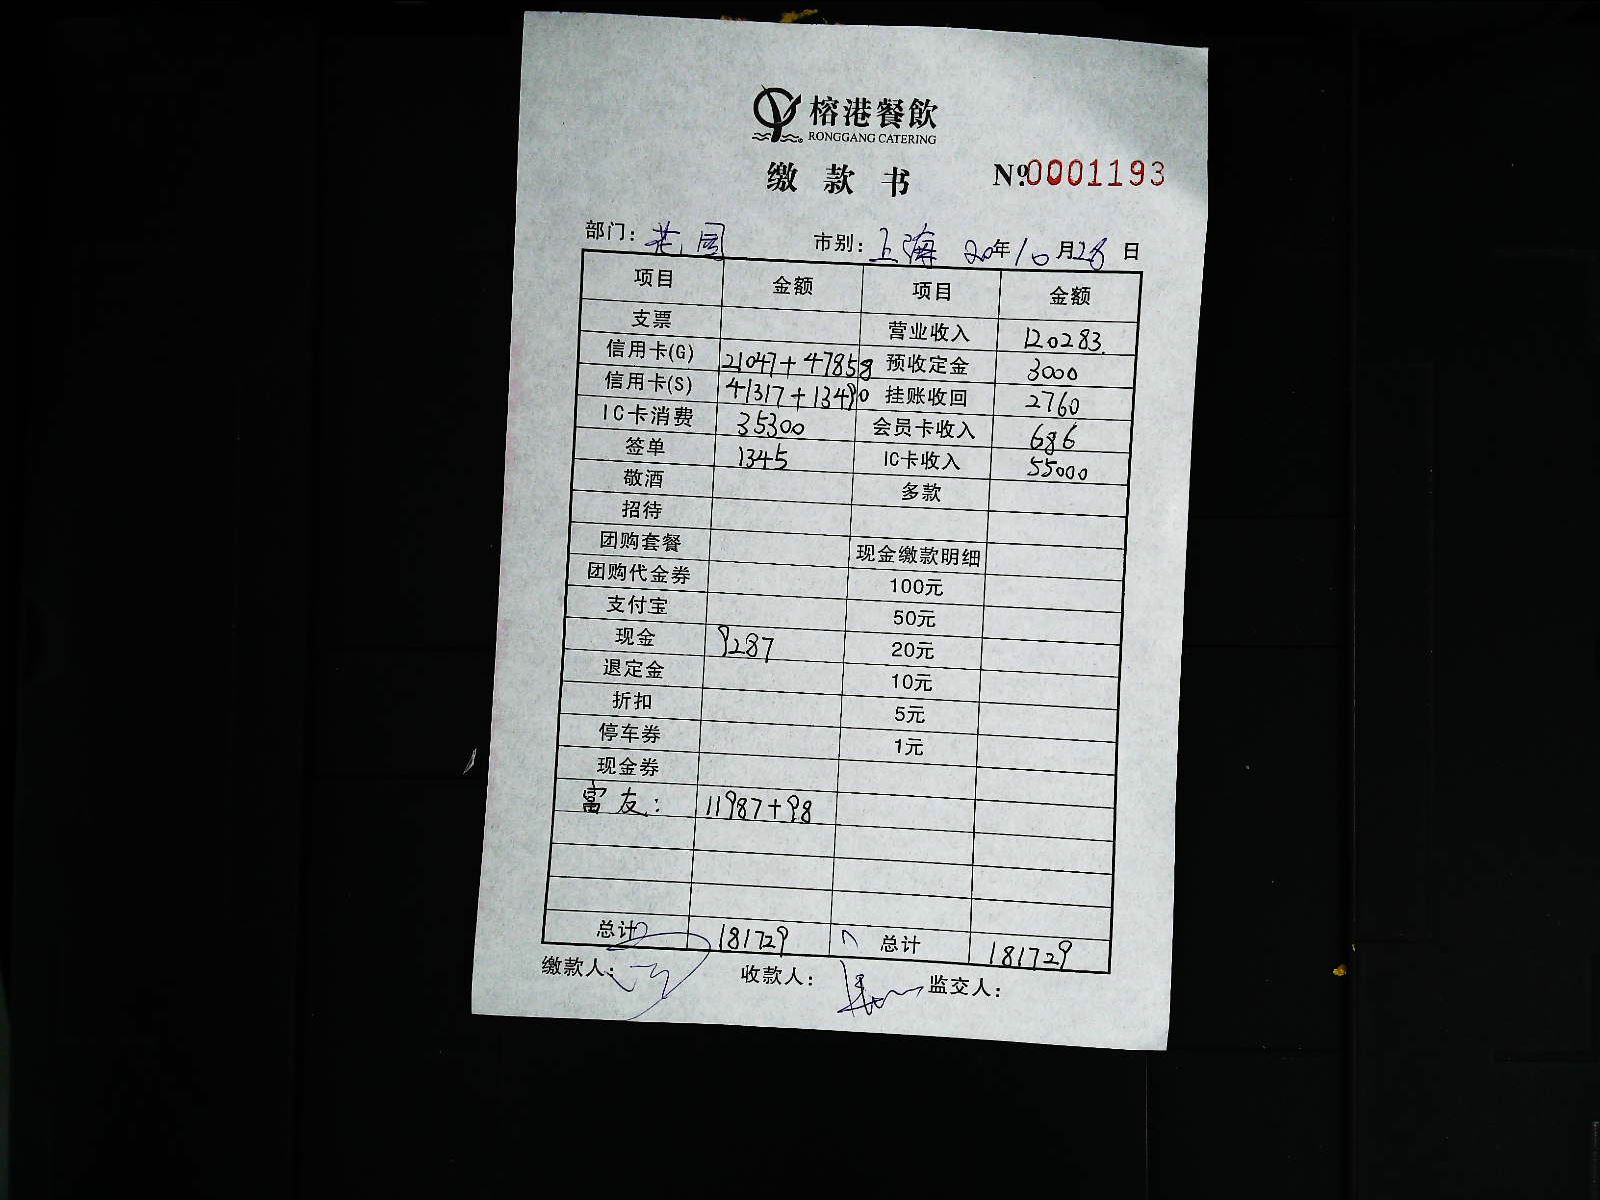 榕港餐飲
RONGGANG CATERING
缴款书 Nº0001193
部门：花园 市别：上海 20年10月28日
项目 金额 项目 金额
支票 营业收入 120283.
信用卡(G) 21047+47858 预收定金 3000
信用卡(S) 41317+13490 挂账收回 2760
IC卡消费 35300 会员卡收入 686
签单 1345 IC卡收入 55000
敬酒 多款
招待
团购套餐 现金缴款明细
团购代金券 100元
支付宝 50元
现金 9287 20元
退定金 10元
折扣 5元
停车券 1元
现金券
富友： 11987+98
总计 181729 总计 181729
缴款人： 收款人： 监交人：